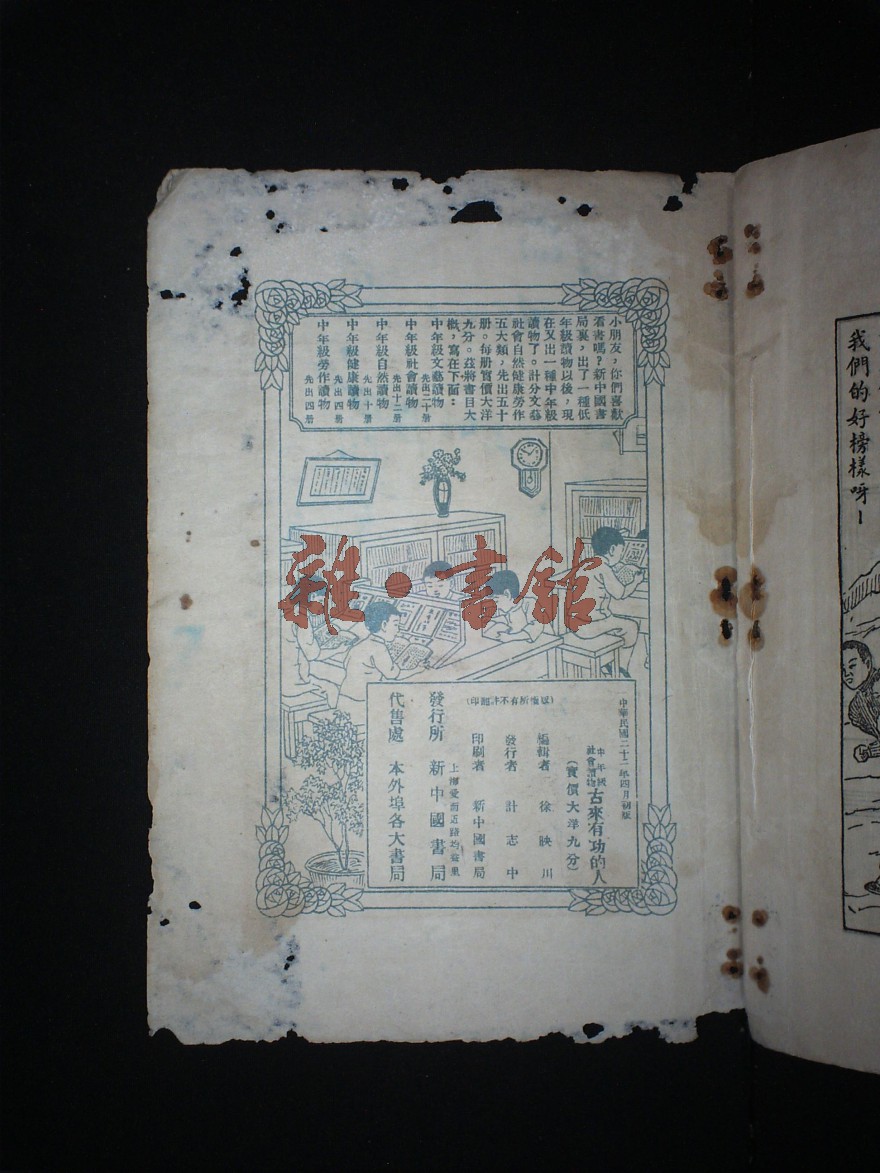 我們的好榜樣呀！
小朋友，你們喜歡
看書嗎？新中國書
局裏，出了一種低
年級讀物以後，現
在又出一種中年級
讀物了。計分文藝
社會自然健康勞作
五大類，先出五十
册。每册實價大洋
九分。茲將書目大
概，寫在下面：
中年級文藝讀物 先出二十册
中年級社會讀物 先出十二册
中年級自然讀物 先出十册
中年級健康讀物 先出四册
中年級勞作讀物 先出四册
雜·書館
中華民國二十二年四月初版
中年級社會讀物 古來有功的人
(實價大洋九分)
編輯者 徐映川
發行者 計志中
印刷者 新中國書局
(版權所有不許翻印)
上海愛而近路均益里
發行所 新中國書局
代售處 本外埠各大書局